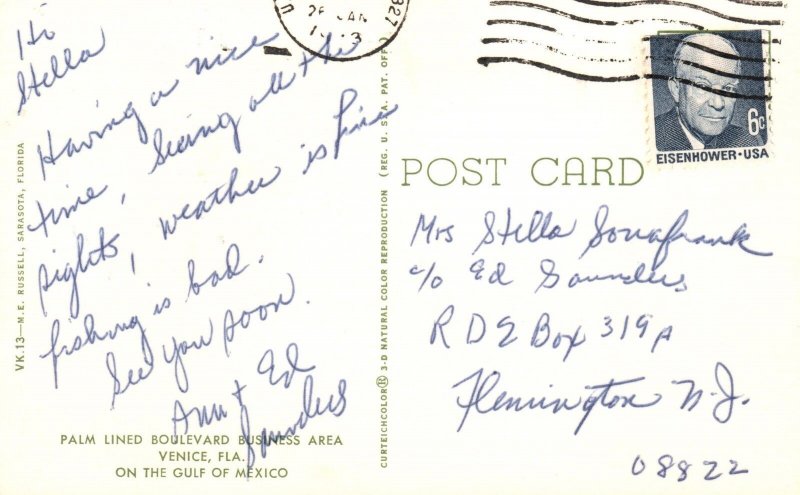 Hi
Stella
Having a nice
time, Seeing all the
sights, weather is fine
fishing is bad.
See you soon.
Ann + Ed
Saunders
PALM LINED BOULEVARD BUSINESS AREA
VENICE, FLA.
ON THE GULF OF MEXICO
VK.13—M.E. RUSSELL, SARASOTA, FLORIDA
CURTEICHCOLOR® 3-D NATURAL COLOR REPRODUCTION (REG. U.S.A. PAT. OFF.)
6c
EISENHOWER·USA
POST CARD
Mrs Stella Sonafrank
c/o Ed Saunders
R D 2 Box 319A
Flemington N.J.
08822